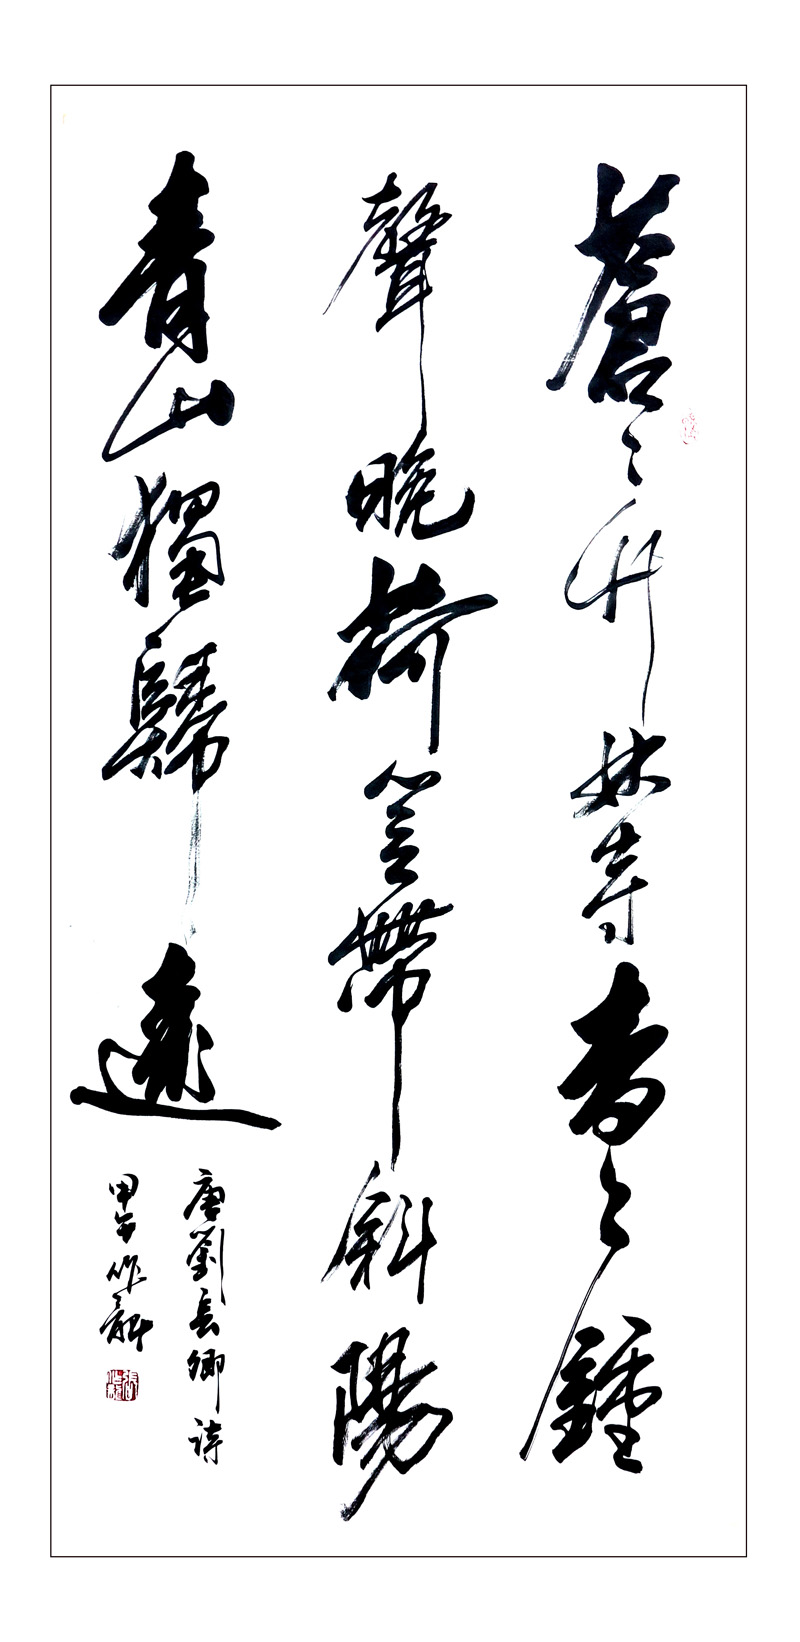 蒼〻竹林寺杳〻鍾
聲晚荷笠帶斜陽
青山獨歸遠
唐劉長卿詩
甲午作